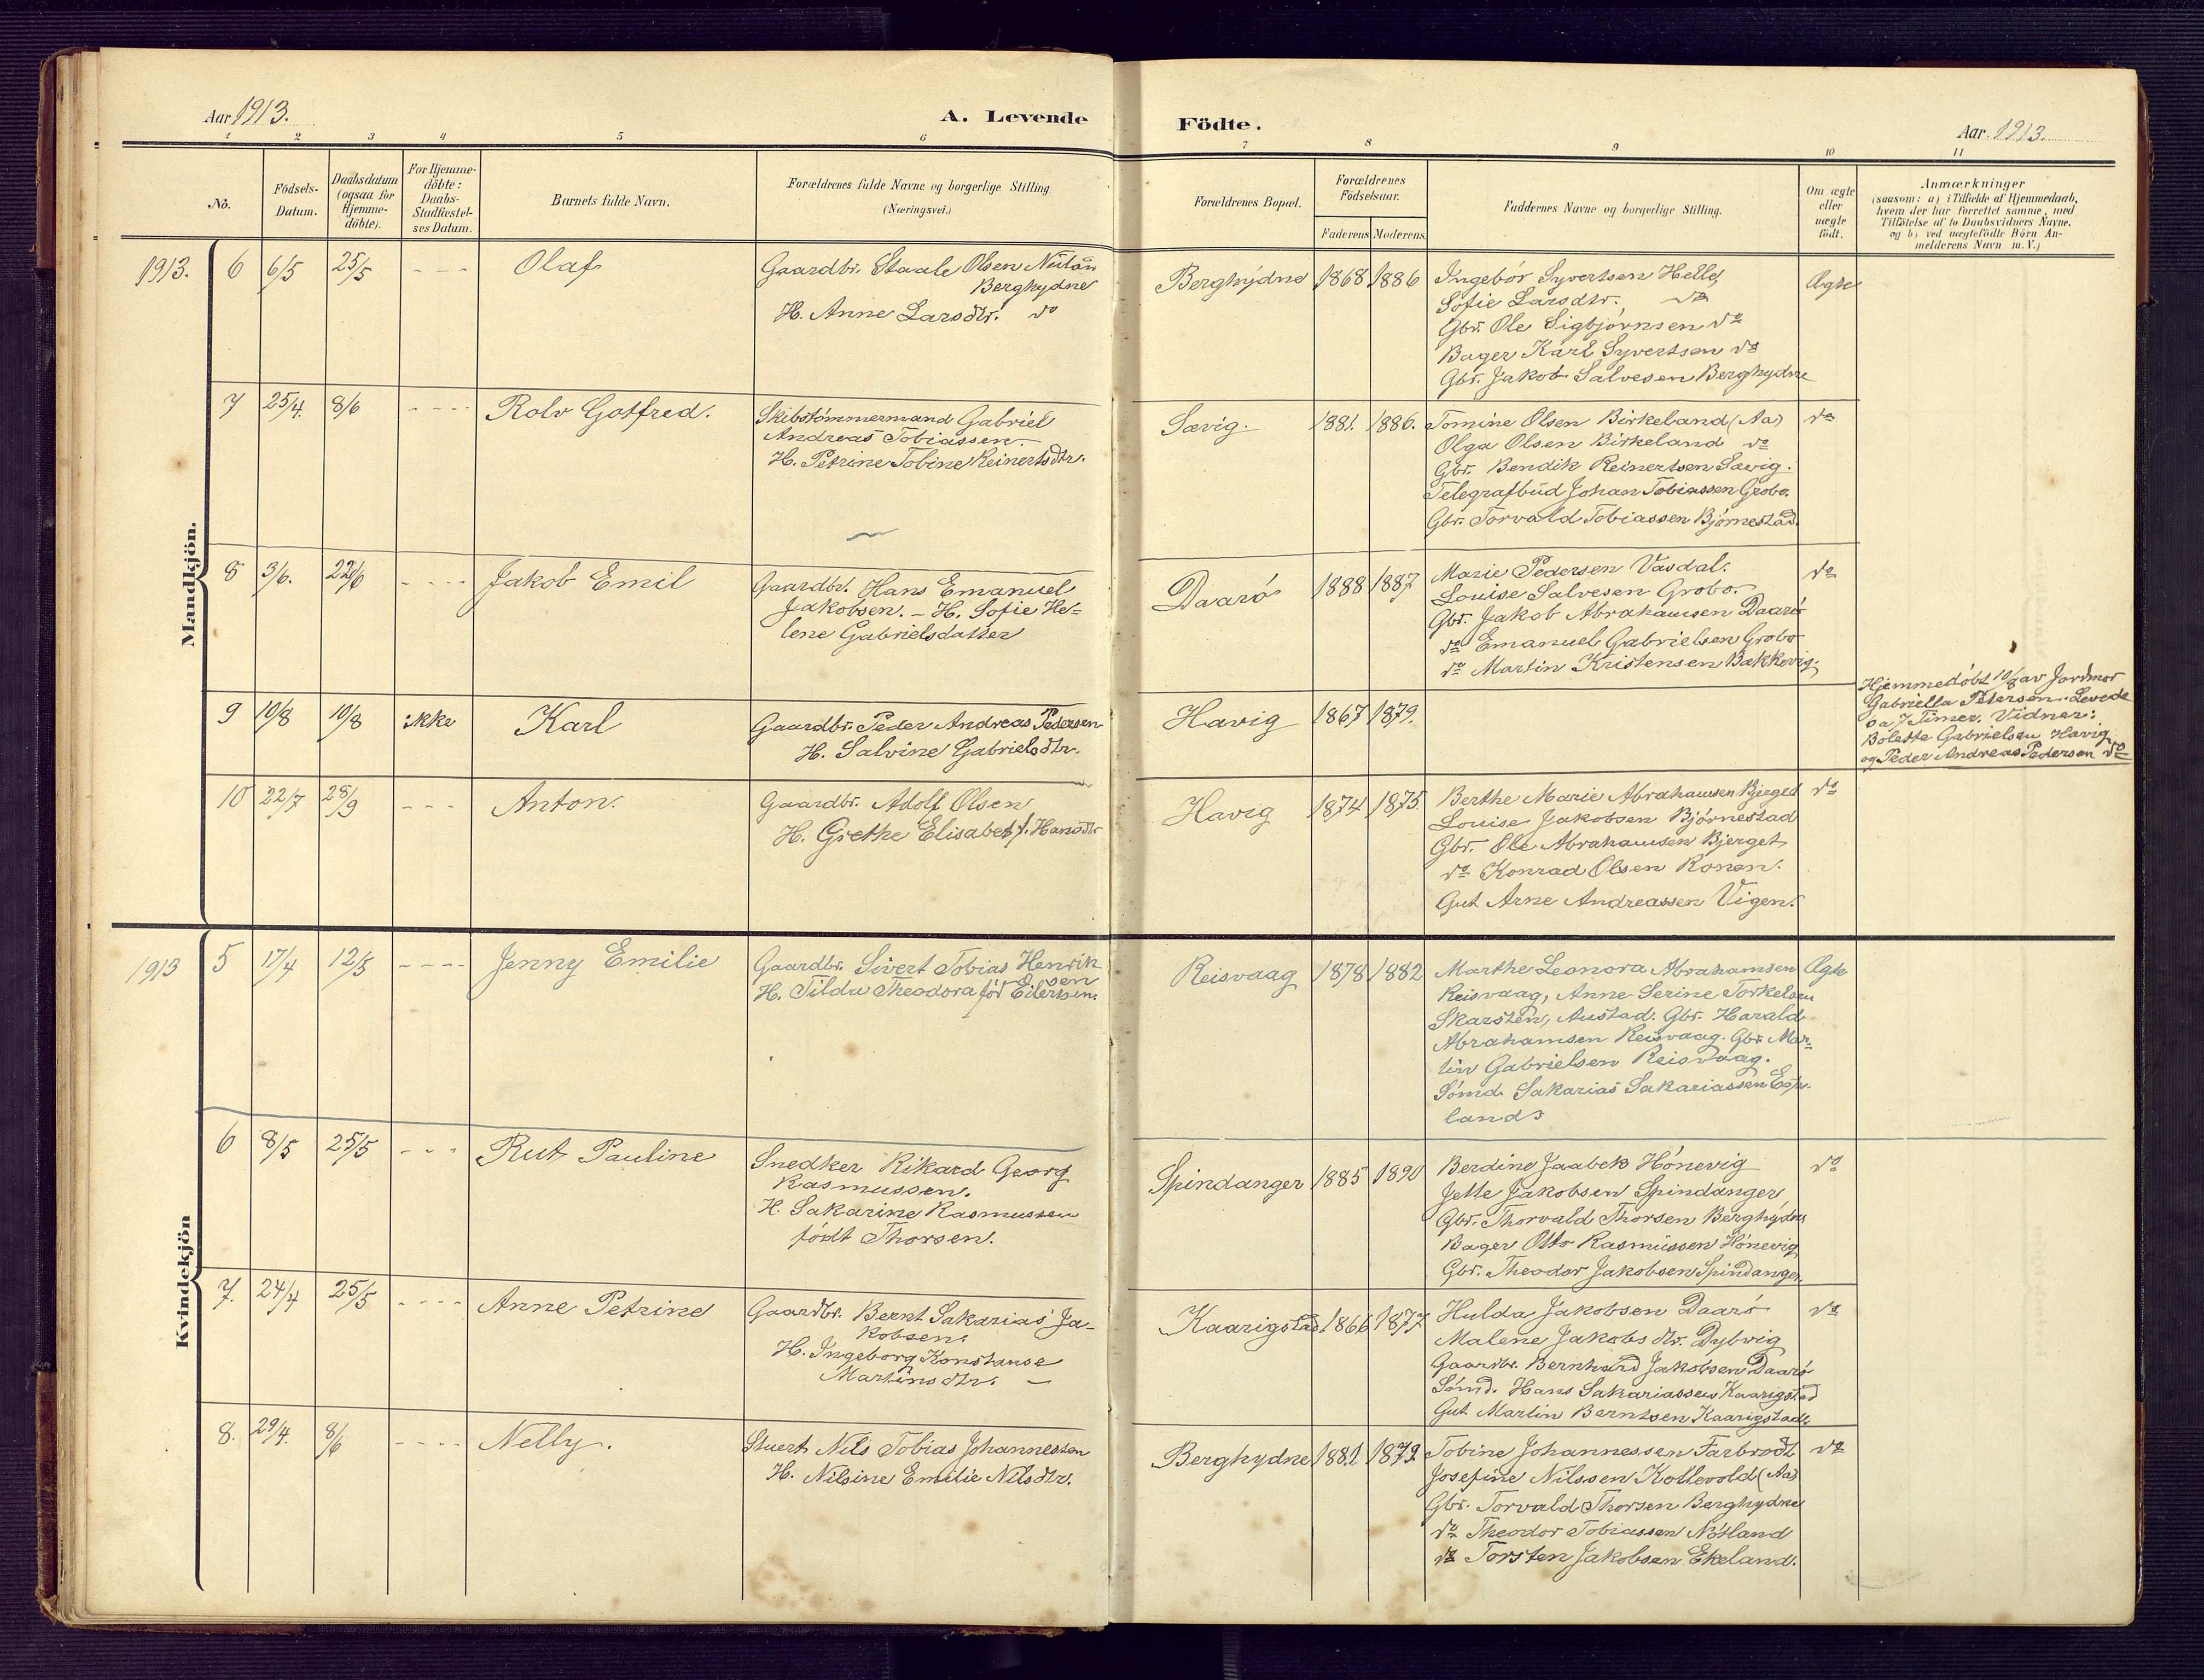 Aar 1913.
A. Levende
Födte.
Aar 1913.
1 2 3 4 5 6 7 8 9 10 11
No.
Födsels-Datum.
Daabsdatum (ogsaa for Hjemme-döbte).
For Hjemme-döbte: Daabs-Stadfæstel-ses Datum.
Barnets fulde Navn.
Forældrenes fulde Navne og borgerlige Stilling
(Næringsvei.)
Forældrenes Bopæl.
Forældrenes Födselsaar.
Faderens Moderens
Faddernes Navne og borgerlige Stilling.
Om ægte eller uægte födt.
Anmærkninger
(saasom: a) i Tilfælde af Hjemmedaab,
hvem der har forrettet samme, med
Tilföielse af to Daabsvidners Navne.
og b) ved uægtefödte Börn An-
melderens Navn m. V.)
Mandkjön.
1913. 6 6/5 25/5 - - - Olaf
Gaardbr. Staale Olsen
Berghydne
H. Anne Larsdtr. do
Berghydne 1868 1886
Ingebör Syvertsen Helle,
Sofie Larsdtr. do
Gbr. Ole Sigbjörnsen do
Bager Karl Syvertsen do
Gbr. Jakob Salvesen Berghydne
Ægte
7 25/4. 8/6 - - - - Rolv Gotfred.
Skibstömmermand Gabriel
Andreas Tobiassen.
H. Petrine Tobine Reinertsdtr.
Sævig. 1881. 1886.
Tomine Olsen Birkeland (Aa)
Olga Olsen Birkeland do
Gbr. Bendik Reinertsen Sævig.
Telegrafbud Johan Tobiassen Grobo.
Gbr. Torvald Tobiassen Björnestad.
do
8 3/6. 22/6 - - - - Jakob Emil
Gaardbr. Hans Emanuel
Jakobsen. - H. Sofie He=
lene Gabrielsdatter
Daarö 1888 1887
Marie Pedersen Vasdal.
Louise Salvesen Grobo.
Gbr. Jakob Abrahamsen Daarö
do Emanuel Gabrielsen Grobo
do Martin Kristensen Bækkevig.
do
9 10/8 10/8 ikke Karl
Gaardbr. Peder Andreas Pedersen
H. Salvine Gabrielsdtr.
Havig 1867 1879.
Hjemmedöbt 10/8 av Jordmor
Gabriella Petersen. Levede
ca 7 Timer. Vidner:
Bolette Gabrielsen Havig
og Peder Andreas Pedersen do
10 22/7 28/9 - - - Anton.
Gaardbr. Adolf Olsen
H. Grethe Elisabet f. Hansdtr
Havig 1874 1875.
Berthe Marie Abrahamsen Bjerget
Louise Jakobsen Björnestad
Gbr. Ole Abrahamsen Bjerget
do Konrad Olsen Ronen.
Gut Arne Andreassen Vigen.
do
Kvindekjön
1913 5 17/4 12/5 - - - - Jenny Emilie
Gaardbr. Sivert Tobias Henrik
sen
H. Tilda Theodora för Eilertsen.
Reisvaag 1878 1882
Marthe Leonora Abrahamsen
Reisvaag, Anne Serine Torkelsen
Skarsten, Austad. Gbr. Harald
Abrahamsen Reisvaag. Gbr. Mar=
tin Gabrielsen Reisvaag.
Sömd. Sakarias Sakariassen Espe-
land
Ægte
6 8/5 25/5 - - - Rut Pauline
Snedker Rikard Georg
Rasmussen.
H. Sakarine Rasmussen
födt Thorsen.
Spindanger 1885 1890
Berdine Jaabek Hönevig
Jette Jakobsen Spindanger
Gbr. Thorvald Thorsen Berghydne
Bager Otto Rasmussen Hönevig
Gbr. Theodor Jakobsen Spindanger
do
7. 24/4 25/5 - - - - Anne Petrine
Gaardbr. Bernt Sakarias Ja-
kobsen.
H. Ingeborg Konstanse
Martinsdtr. -
Kaarigstad. 1866 1877
Hulda Jakobsen Daarö
Malene Jakobsdtr. Dybvig
Gaardbr. Bernhard Jakobsen Daarö
Sömd. Hans Sakariassen Kaarigstad
Gut Martin Berntsen Kaarigstad
do
8. 29/4. 8/6 - - - - Nelly.
Stuert Nils Tobias Johannessen
H. Nilsine Emilie Nilsdtr.
Berghydne 1881 1879.
Tobine Johannessen Farbrodt
Josefine Nilssen Kollevold (Aa)
Gbr. Torvald Thorsen Berghydne
do Theodor Tobiassen Nötland
do Torsten Jakobsen Ekeland.
do